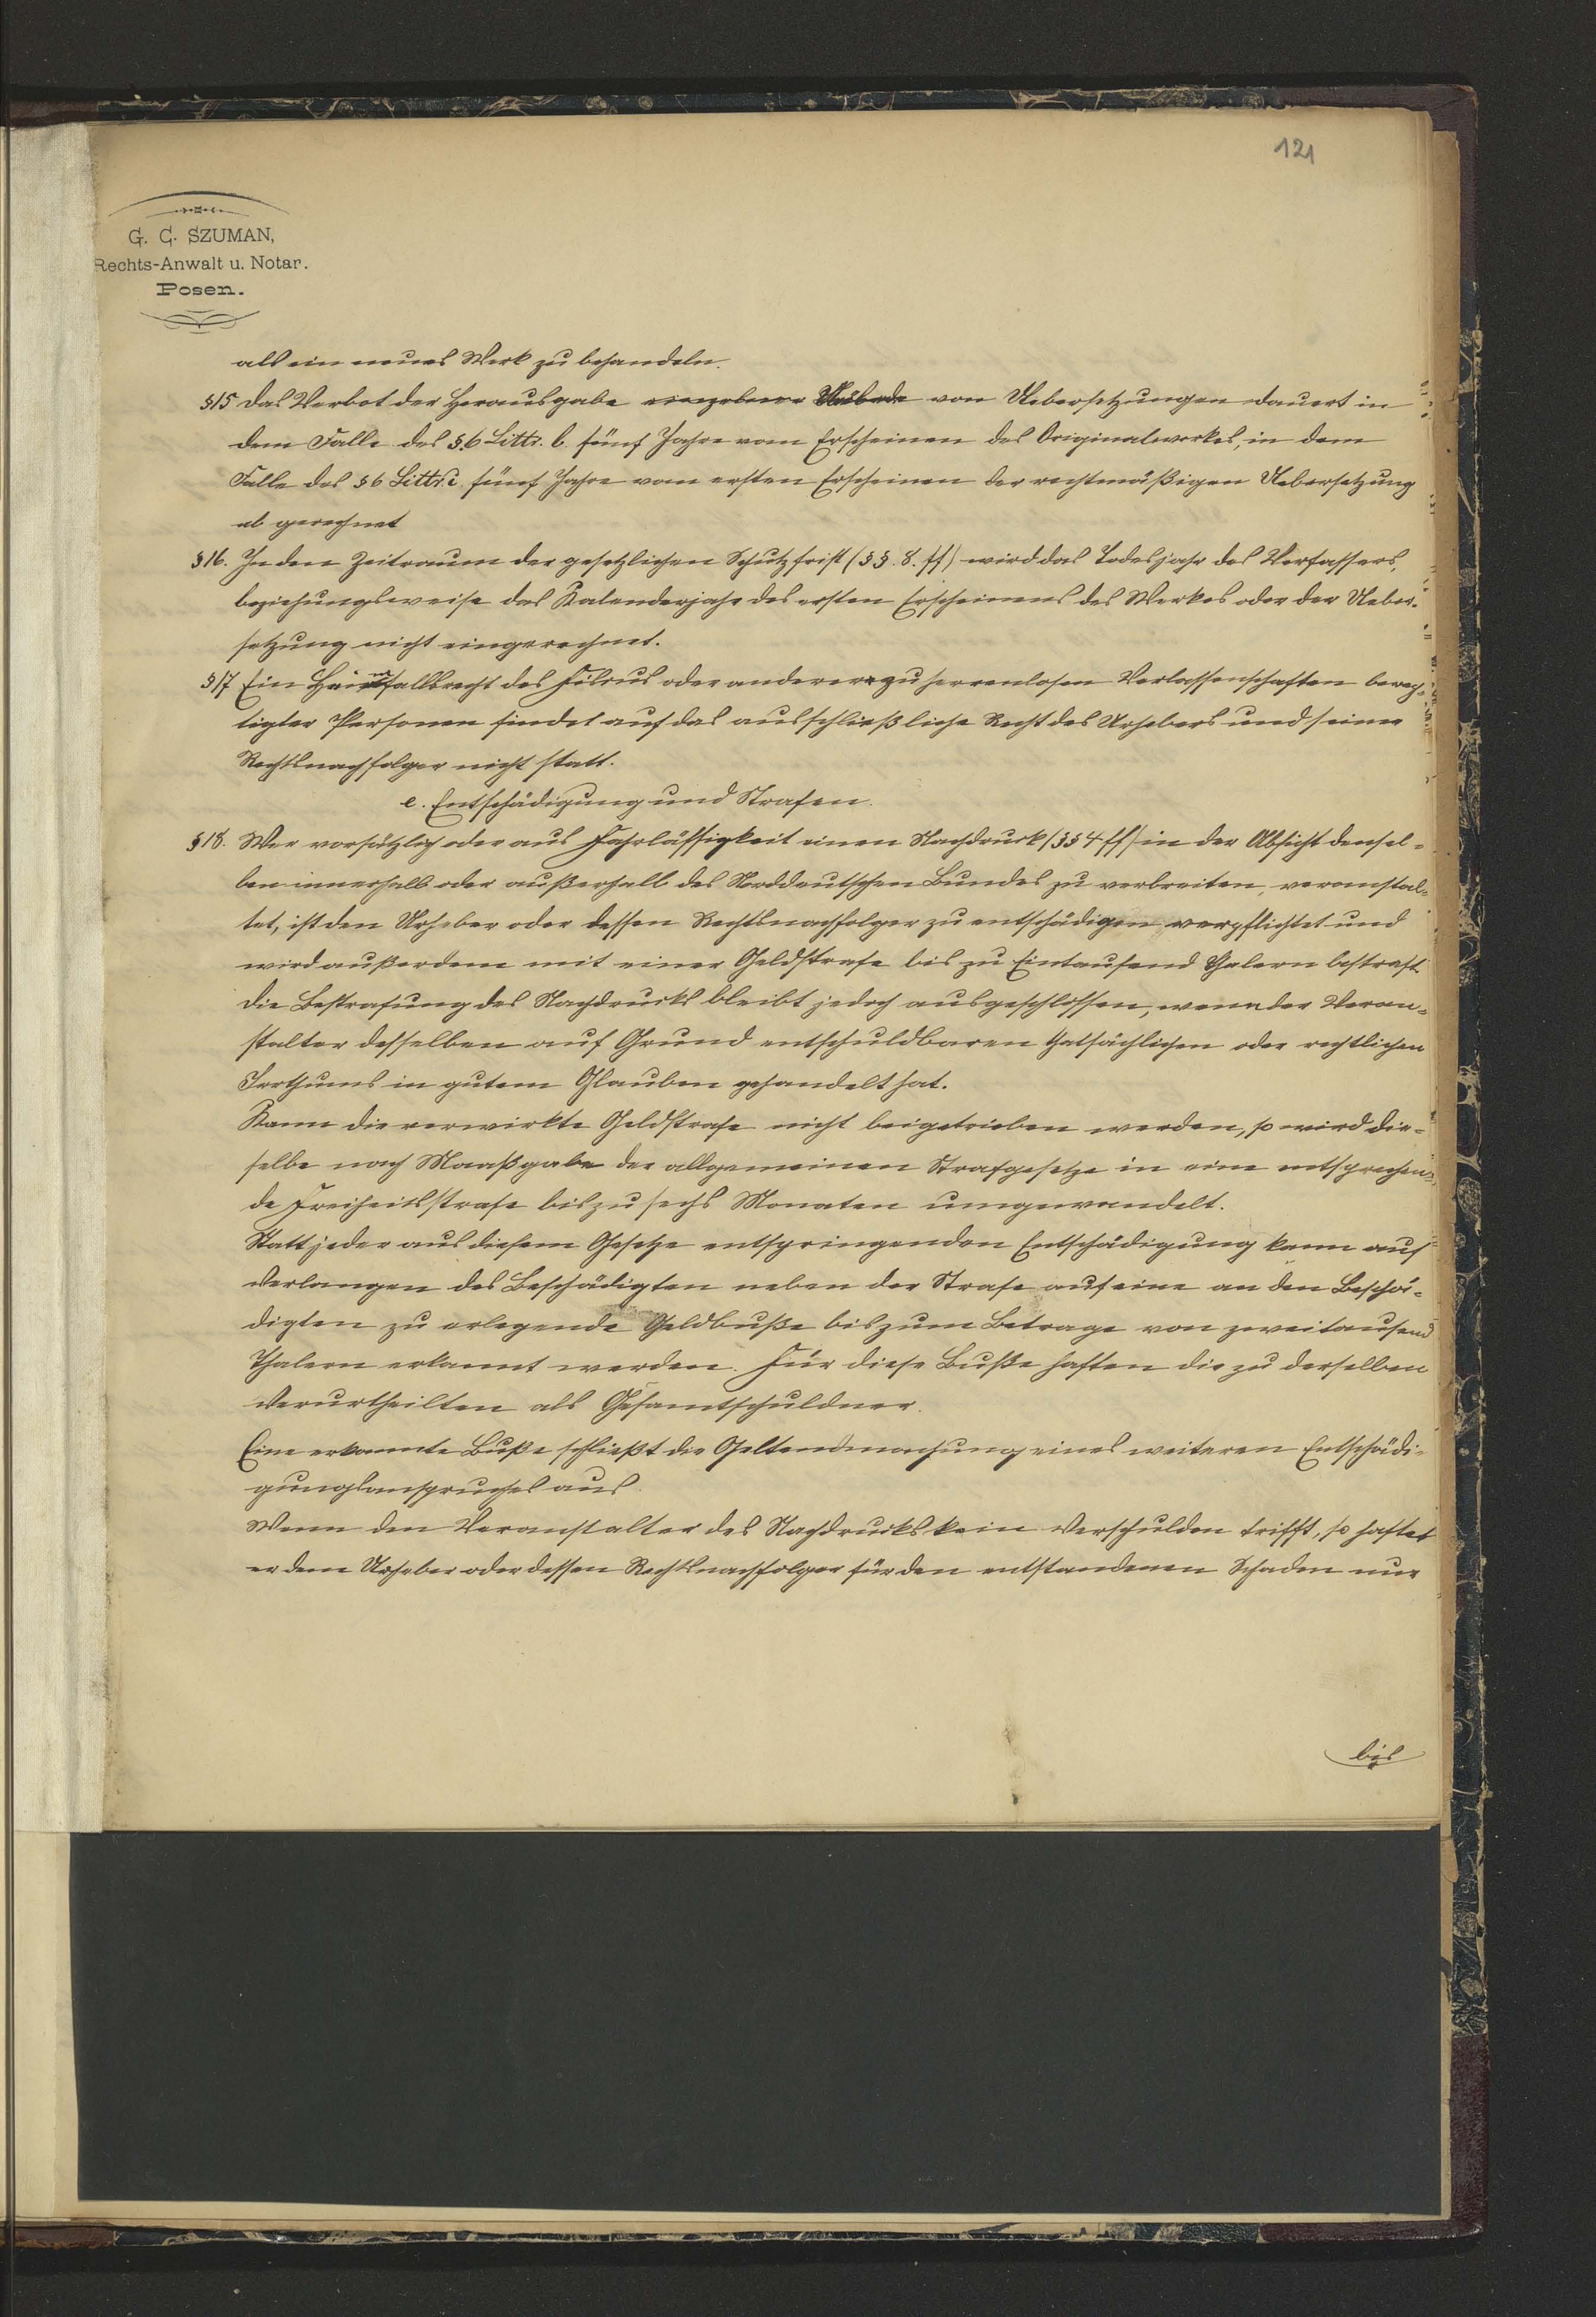 121
G. C. SZUMAN,
Rechts-Anwalt u. Notar.
Posen.
als ein neues Werk zu behandeln.
§15 Das Verbot der Herausgabe von Uebersetzungen dauert in
dem Falle des §.6 Littr. b. fünf Jahre vom Erscheinen des Originalwerkes, in dem
Falle des §6 Littr. c. fünf Jahre vom ersten Erscheinen der rechtmäßigen Uebersetzung
ab gerechnet
§16. In den Zeitraum der gesetzlichen Schutzfrist (§§. 8. ff) wird das Todesjahr des Verfassers,
beziehungsweise das Kalenderjahr des ersten Erscheinens des Werkes oder der Ueber-
setzung nicht eingerechnet.
§17 Ein Heimfallsrecht des Fiskus oder anderer zu herrenlosen Verlassenschaften berech-
tigter Personen findet auf das ausschließliche Recht des Urhebers und seiner
Rechtsnachfolger nicht statt.
e. Entschädigung und Strafen.
§18. Wer vorsätzlich oder aus Fahrlässigkeit einen Nachdruck (§§ 4 ff) in der Absicht densel-
ben innerhalb oder außerhalb des Norddeutschen Bundes zu verbreiten, veranstal-
tet, ist den Urheber oder dessen Rechtsnachfolger zu entschädigen verpflichtet und
wird außerdem mit einer Geldstrafe bis zu Eintausend Thalern bestraft.
Die Bestrafung des Nachdrucks bleibt jedoch ausgeschlossen, wenn der Veran-
stalter desselben auf Grund entschuldbaren thatsächlichen oder rechtlichen
Irrthums in gutem Glauben gehandelt hat.
Kann die verwirkte Geldstrafe nicht beigetrieben werden, so wird die-
selbe nach Maaßgabe der allgemeinen Strafgesetze in eine entsprechen-
de Freiheitsstrafe bis zu sechs Monaten umgewandelt.
Statt jeder aus diesem Gesetze entspringenden Entschädigung kann auf
Verlangen des Beschädigten neben der Strafe auf eine an den Beschä-
digten zu erlegende Geldbuße bis zum Betrage von zweitausend
Thalern erkannt werden. Für diese Buße haften die zu derselben
Verurtheilten als Gesamtschuldner.
Eine erkannte Buße schließt die Geltendmachung eines weiteren Entschädi-
gungsanspruches aus.
Wenn den Veranstalter des Nachdrucks kein Verschulden trifft, so haftet
er dem Urheber oder dessen Rechtsnachfolger für den entstandenen Schaden nur
bis